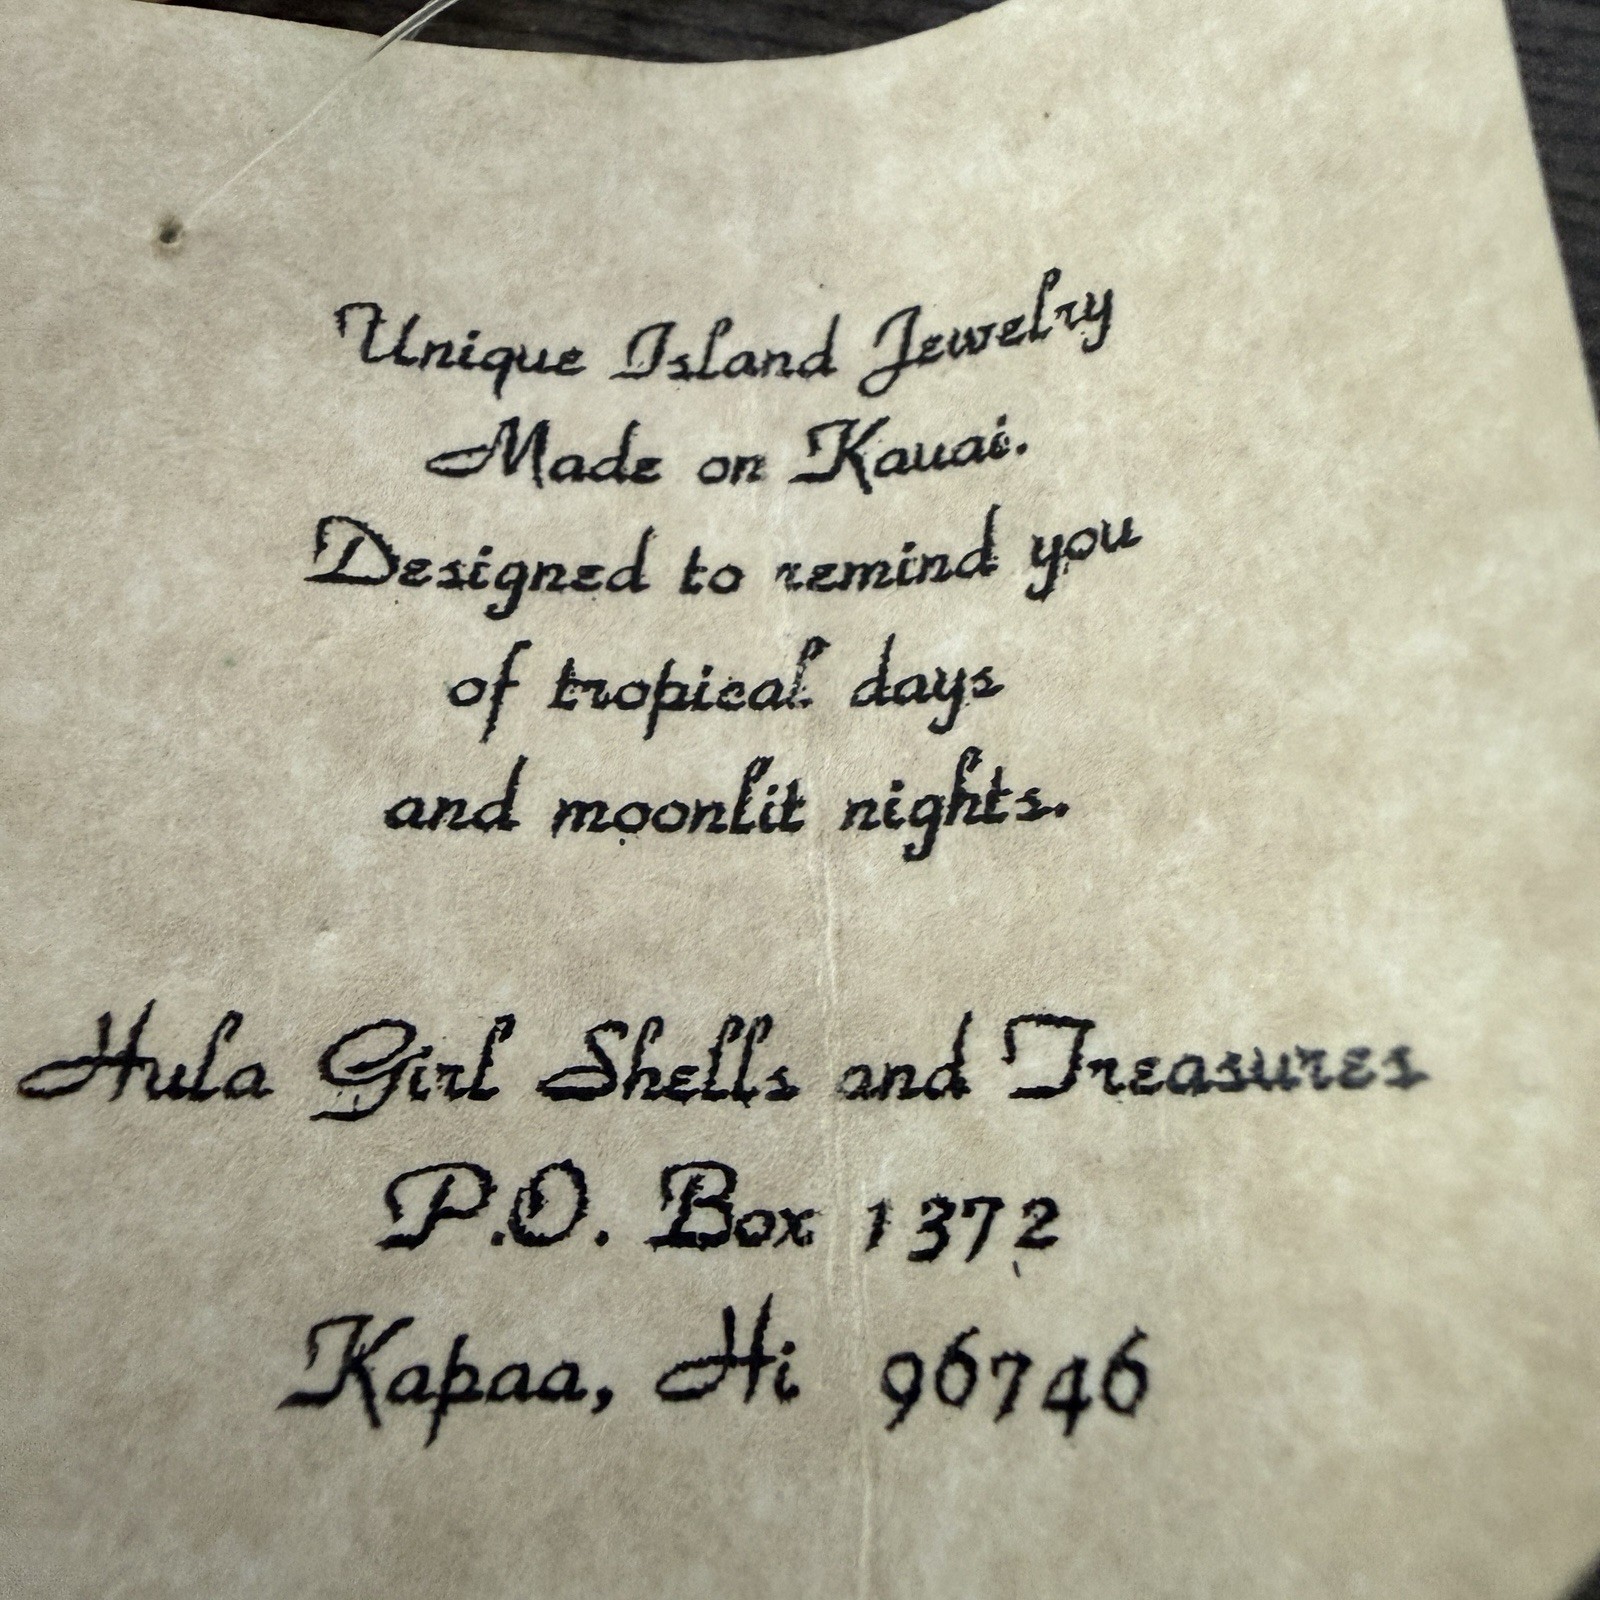 Unique Island Jewelry
Made on Kauai.
Designed to remind you
of tropical days
and moonlit nights.
Hula Girl Shells and Treasures
P.O. Box 1372
Kapaa, Hi 96746